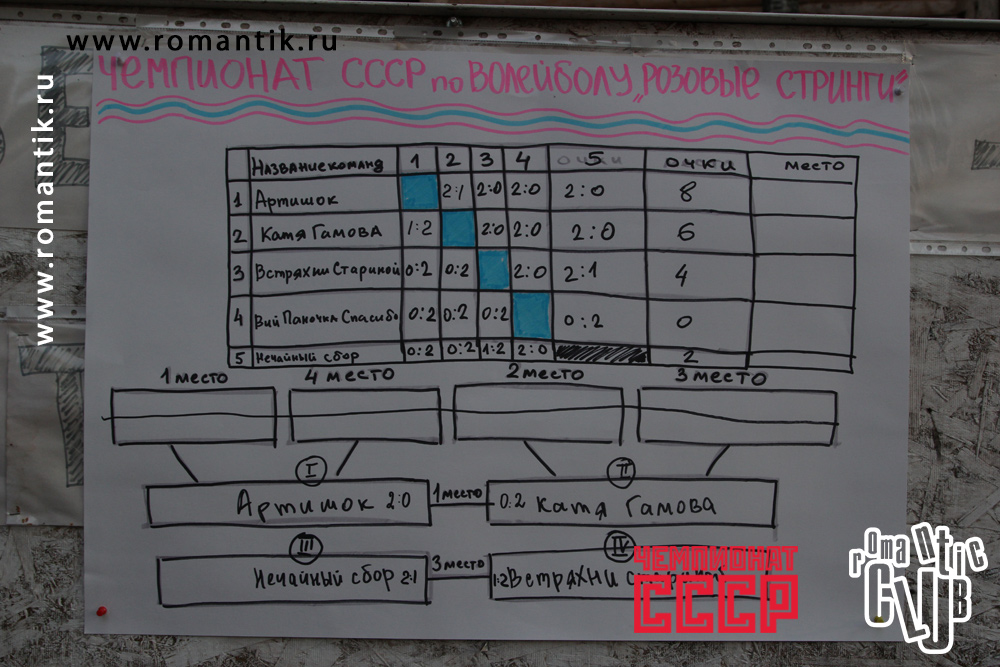 www.romantik.ru
www.romantik.ru
ЧЕМПИОНАТ СССР по ВОЛЕЙБОЛУ „РОЗОВЫЕ СТРИНГИ"
Название команд 1 2 3 4 5 очки место
1 Артишок 2:1 2:0 2:0 2:0 8
2 Катя Гамова 1:2 2:0 2:0 2:0 6
3 Встряхни Стариной 0:2 0:2 2:0 2:1 4
4 Вий Паночка Спасибо 0:2 0:2 0:2 0:2 0
5 Нечайный сбор 0:2 0:2 1:2 2:0 2
1 место 4 место 2 место 3 место
I II
Артишок 2:0 1 место 0:2 Катя Гамова
III IV
Нечайный сбор 2:1 3 место 1:2 Встряхни
ЧЕМПИОНАТ
СССР
romantic
CLUB